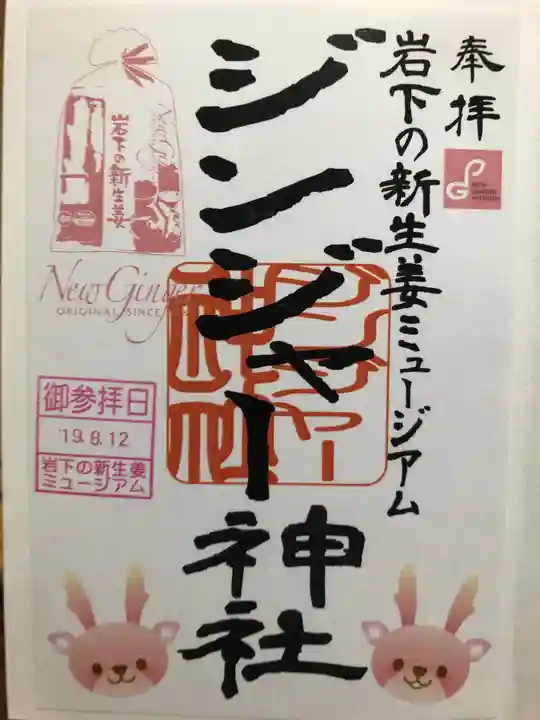 奉拝
岩下の新生姜ミュージアム
ジンジャー神社
ジンジャー
神社
岩下の新生姜
New Ginger
ORIGINAL SINCE
御参拝日
'19.8.12
岩下の新生姜
ミュージアム